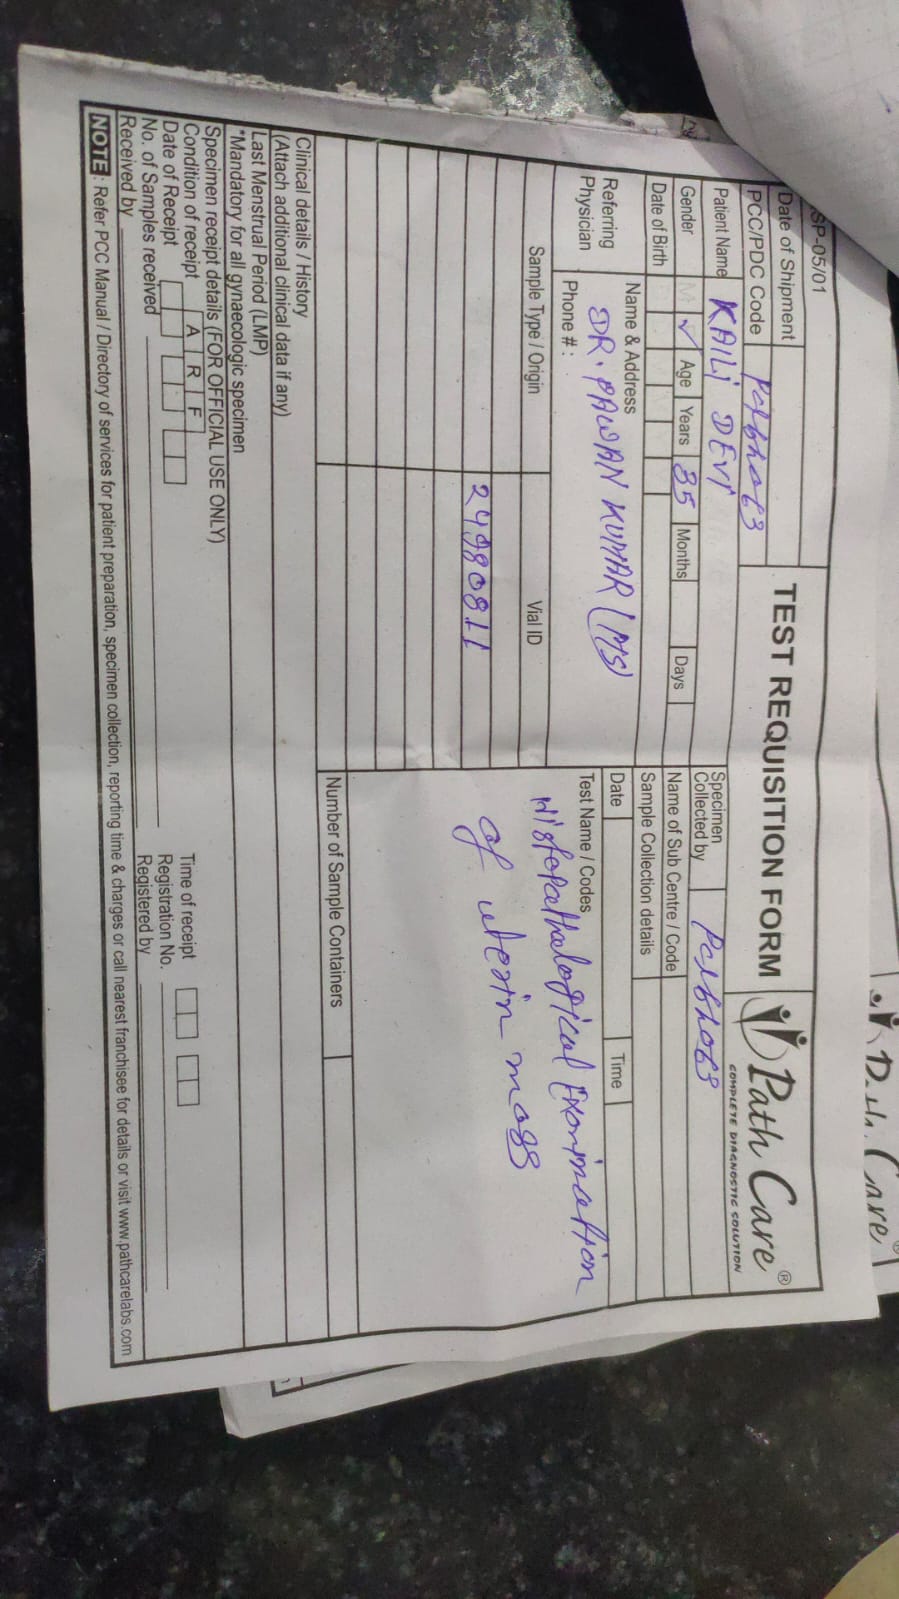 SP-05/01
Date of Shipment
PCC/PDC Code
TEST REQUISITION FORM
Path Care ®
COMPLETE DIAGNOSTIC SOLUTION
Patient Name KAILI DEVI
Gender M ✓ Age Years 35 Months Days
Date of Birth
Referring Physician
Name & Address
DR. PAWAN KUMAR (MS)
Phone # :
Specimen Collected by
Name of Sub Centre / Code
Sample Collection details
Date Time
Sample Type / Origin Vial ID
24980811
Test Name / Codes
Histopathological Exomincation
of uterin mass
Number of Sample Containers
Clinical details / History
(Attach additional clinical data if any)
Last Menstrual Period (LMP)
*Mandatory for all gynaecologic specimen
Specimen receipt details (FOR OFFICIAL USE ONLY)
Condition of receipt A R F
Date of Receipt Time of receipt
No. of Samples received Registration No.
Received by Registered by
NOTE : Refer PCC Manual / Directory of services for patient preparation, specimen collection, reporting time & charges or call nearest franchisee for details or visit www.pathcarelabs.com
Care